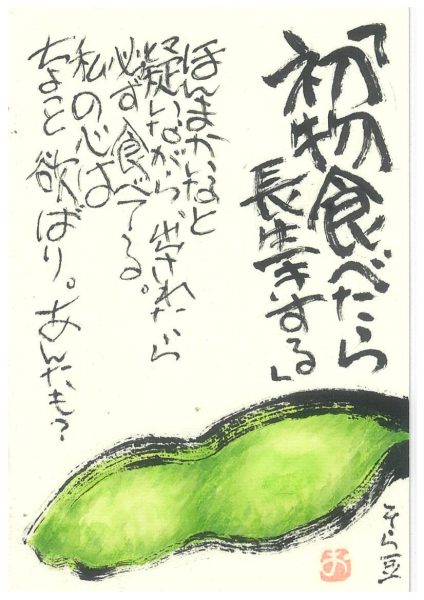 「初物食べたら
長生きする」
ほんまかいなと
疑いながら、出されたら
必ず食べてる。
私の心は
ちょっと欲ばり。あんたも?
そら豆